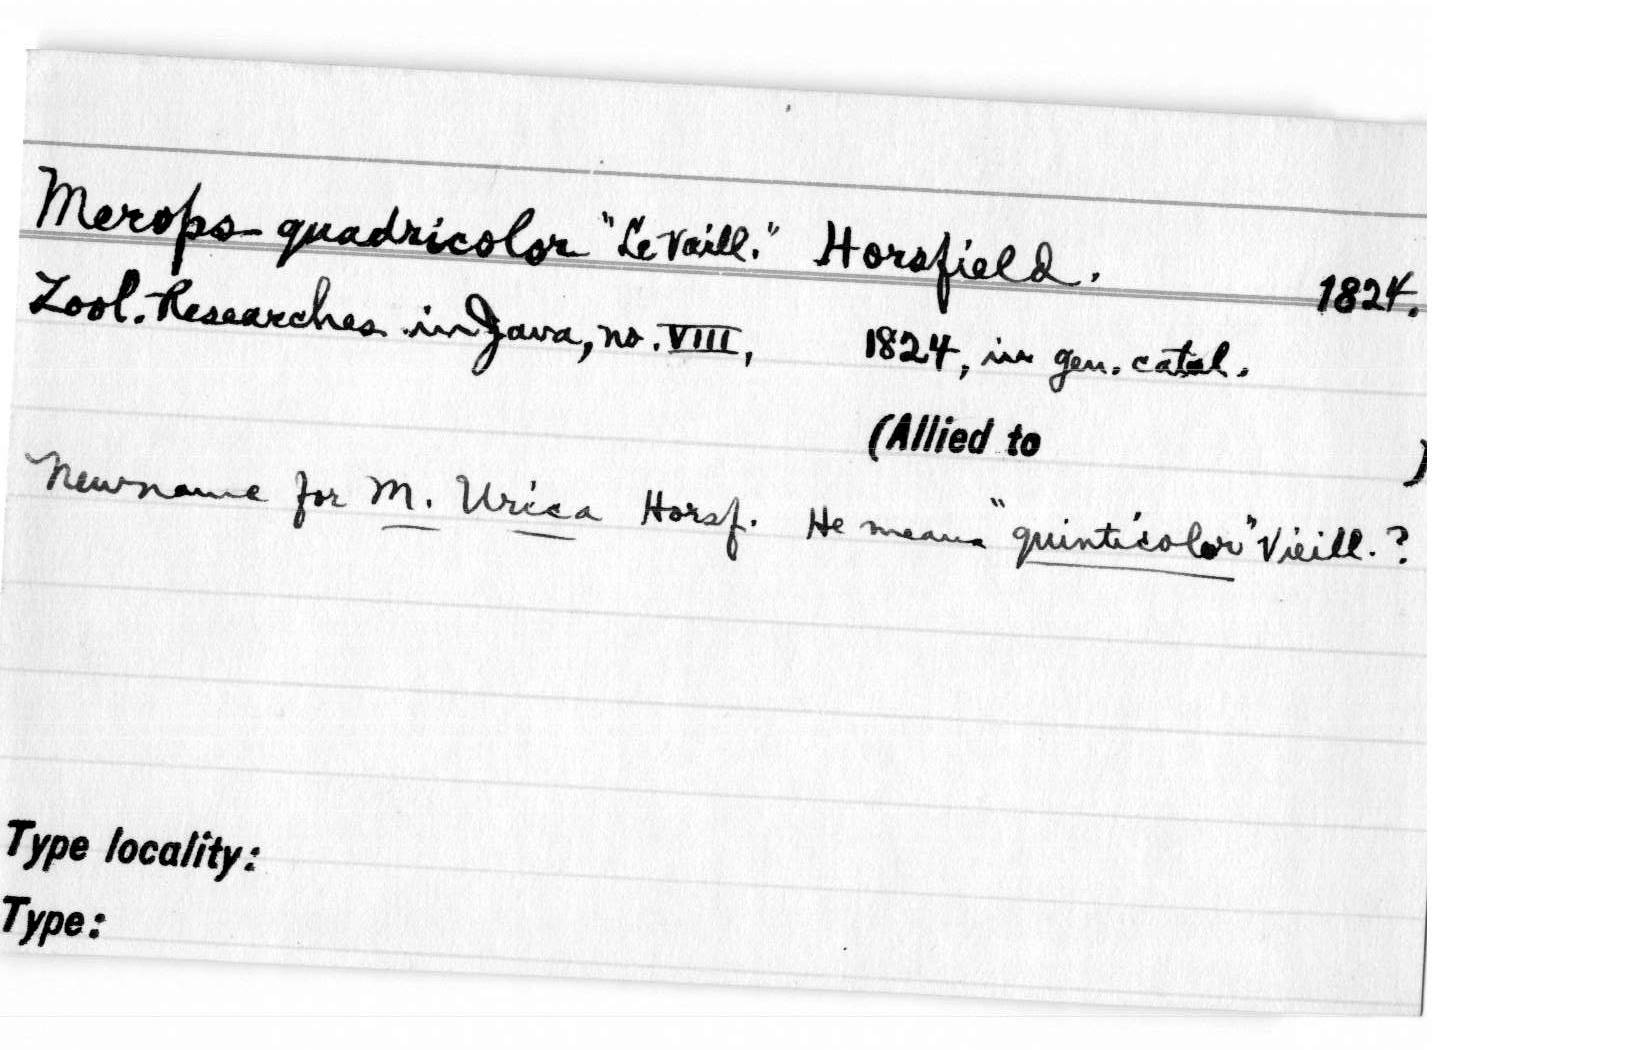 Merops quadricolor "Le Vaill." Horsfield. 1824.
Zool. Researches in Java, no. VIII, 1824, in gen. catal.
(Allied to )
New name for M. Urica Horsf. He means "quinticolor" Vieill.?
Type locality:
Type: